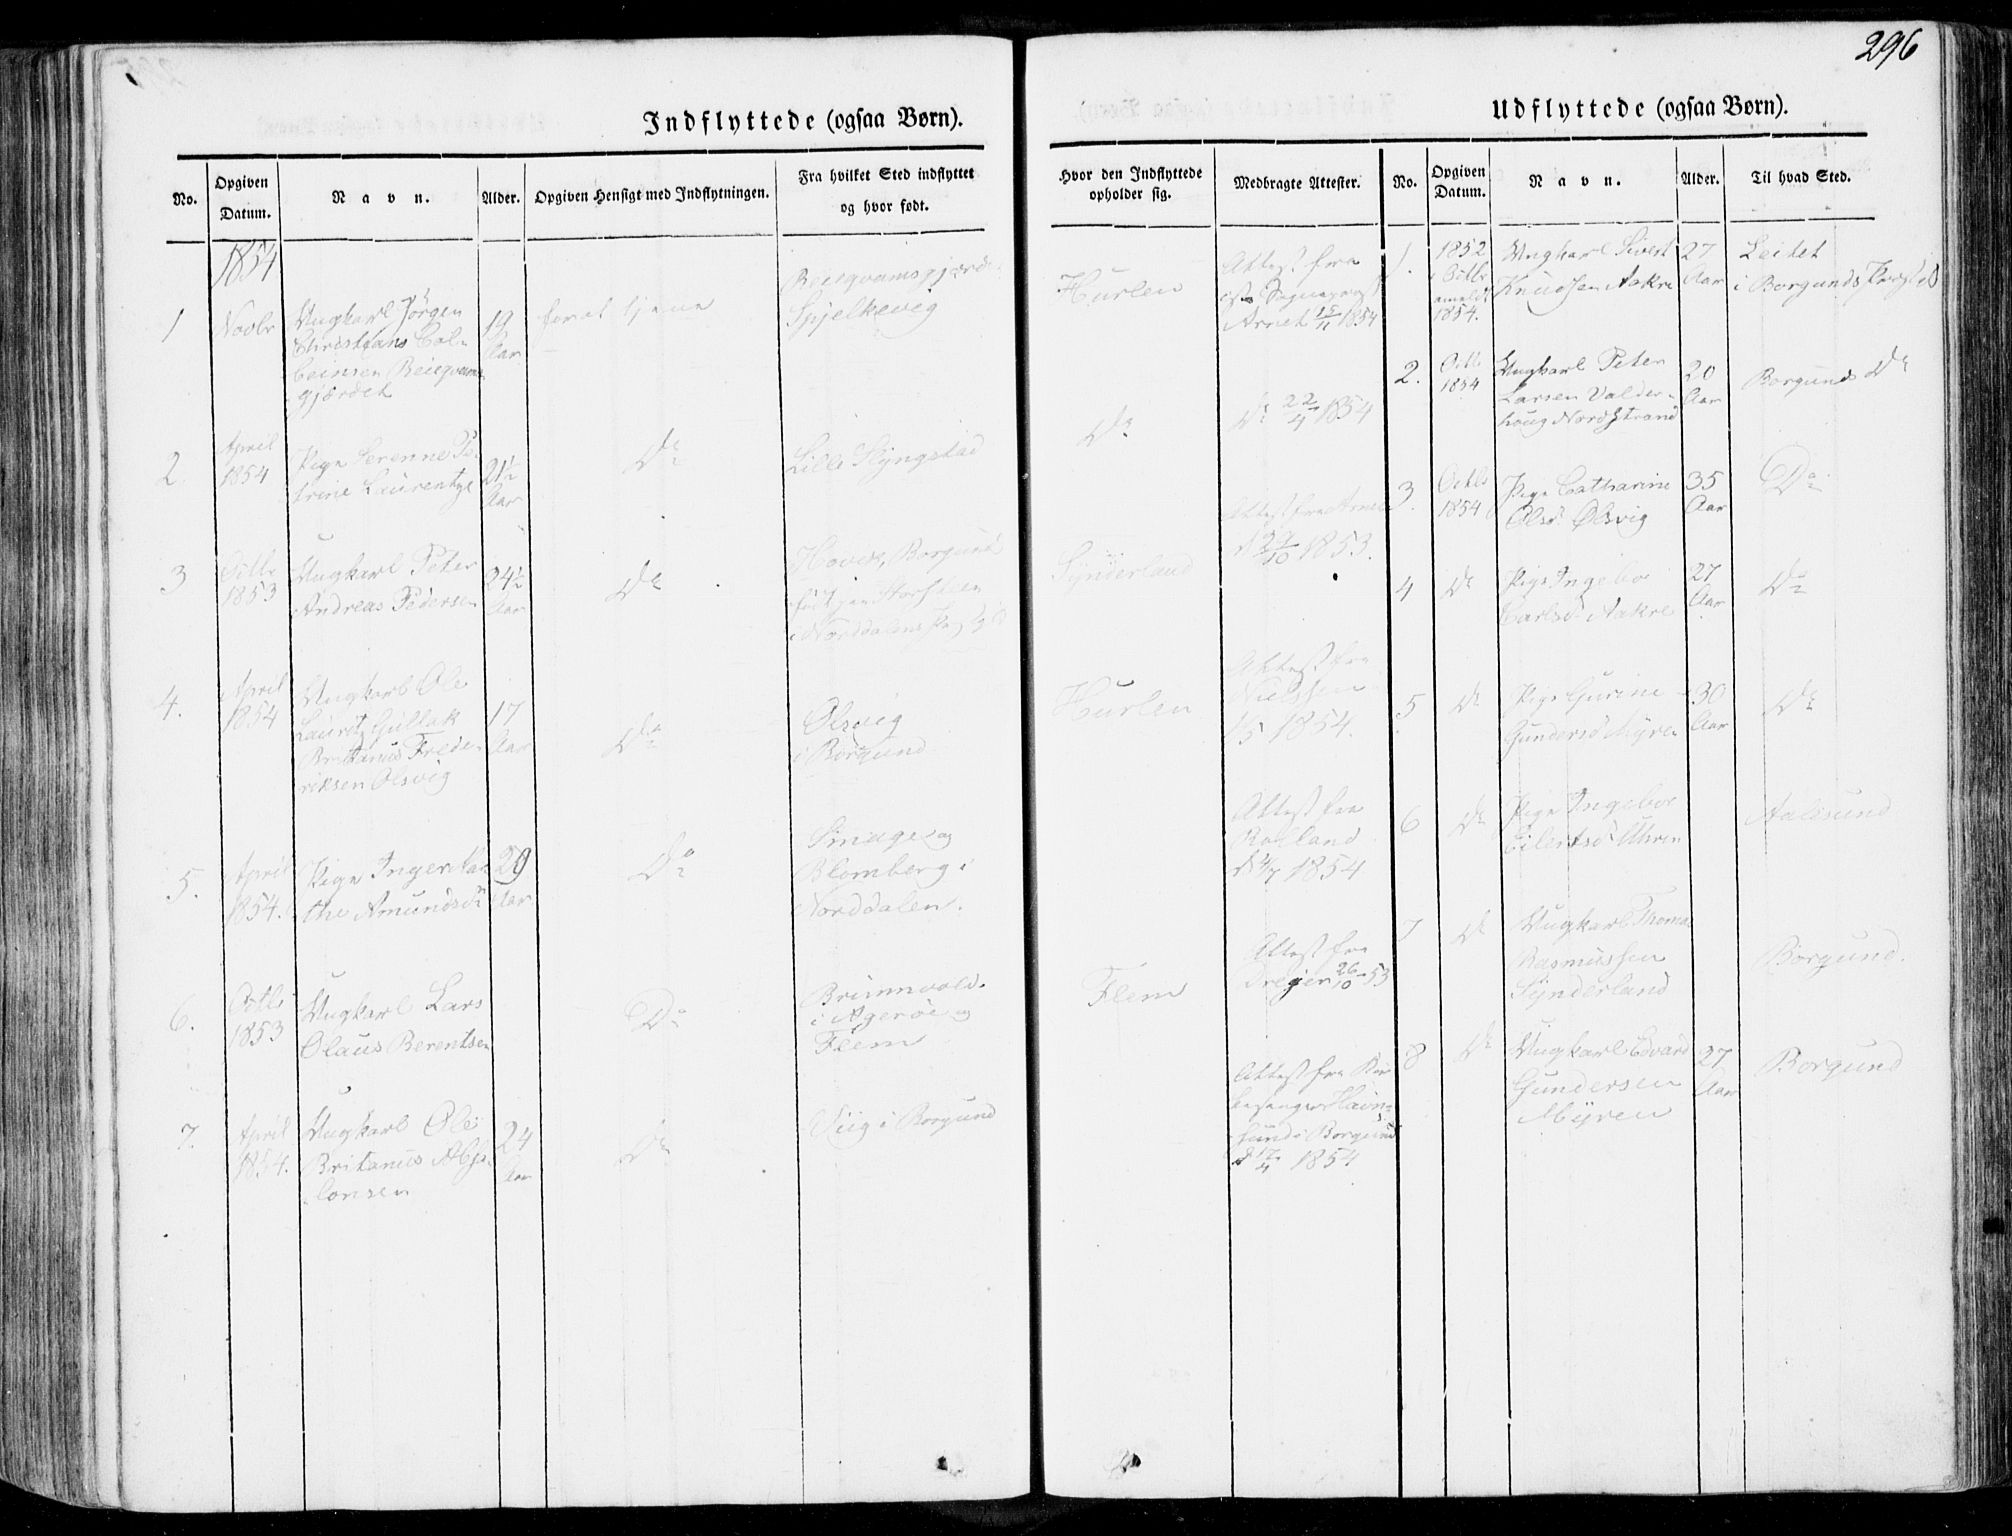 296
Indflyttede (ogsaa Børn).
No.
Opgiven
Datum.
Navn.
Alder.
Opgiven Hensigt med Indflytningen.
Fra hvilket Sted indflyttet
og hvor født.
Hvor den Indflyttede
opholder sig.
Medbragte Attester.
1854
1
Novbr
Ungkarl Jørgen
Christians Col-
beinsen
gjærdet
19
Aar
for at tjene
Spjelkevig
Hurlen
Attest fra
Sogneprest
Arnet 15/11 1854
2.
April
1854
Pige Serenne Pe-
trine Laurentze
21½
Aar
Do
Lille Slyngstad
Do
Do 22/4 1854
3
Octbr
1853
Ungkarl Peter
Andreas Pedersen
24½
Aar
Do
Hovde, Borgund
født paa Storsteen
i Norddalens
Synderland
Attest fra Arnet
d 29/10 1853.
4.
April
1854
Ungkarl Ole
Lauritz Gullak
Britanus Frede-
riksen Olsvig
17
Aar
Do
Olsvig
i Borgund
Hurlen
Attest fra
Nielssen
1/5 1854.
5.
April
1854.
Pige Inger
the Amundsd
29
Aar
Do
Blomberg i
Norddalen.
Attest fra
Rolland
1854
6.
Octbr
1853
Ungkarl Lars
Olaus Berentsen
Do
Brunvold
i Agerøe og
Flem
Flem
Attest fra
Dreyer 26/10 53
7.
April
1854.
Ungkarl Ole
Britanus Absa-
lonsen
24
Aar
Do
i Borgund
Attest fra Kir
kesanger
sund i Borgund
d 17/4 1854
Udflyttede (ogsaa Børn).
No.
Opgiven
Datum.
Navn.
Alder.
Til hvad Sted.
1.
1852
Octbr
anmeldt
1854.
Ungkarl Sivert
Knudsen Aakre
27
Aar
Leitet
i Borgunds Prgjeld
2.
Octb
1854
Ungkarl Peter
Larsen Valder-
houg Nordstrand
20
Aar
Borgunds Do
3
Octbr
1854
Pige Catharine
Olsd Olsvig
35
Aar
Do
4
Do
Pige Ingebor
Carlsd Aakre
27
Aar
Do
5
Do
Pige Gurine
Gundersd Myren
30
Aar
Do
6
Do
Pige Ingebor
Eilertsd Uhren
Aalesund
7
Do
Ungkarl Thomas
Rasmussen
Synderland
Borgund.
8
Do
Ungkarl Edvard
Gundersen
Myren
27
Aar
Borgund